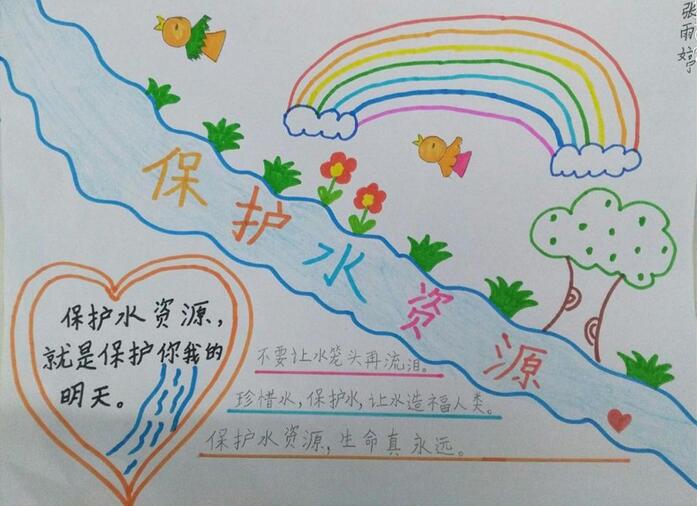 张雨婷
保护水资源
保护水资源，
就是保护你我的
明天。
不要让水笼头再流泪。
珍惜水，保护水，让水造福人类。
保护水资源，生命真永远。